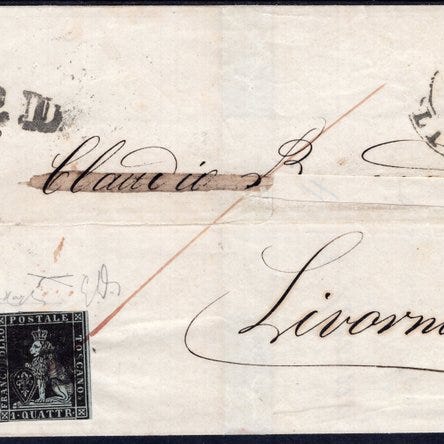 PD
LI
Claudio
Livorn
FRANCOBOLLO
POSTALE
TOSCANO
1 QUATTR.